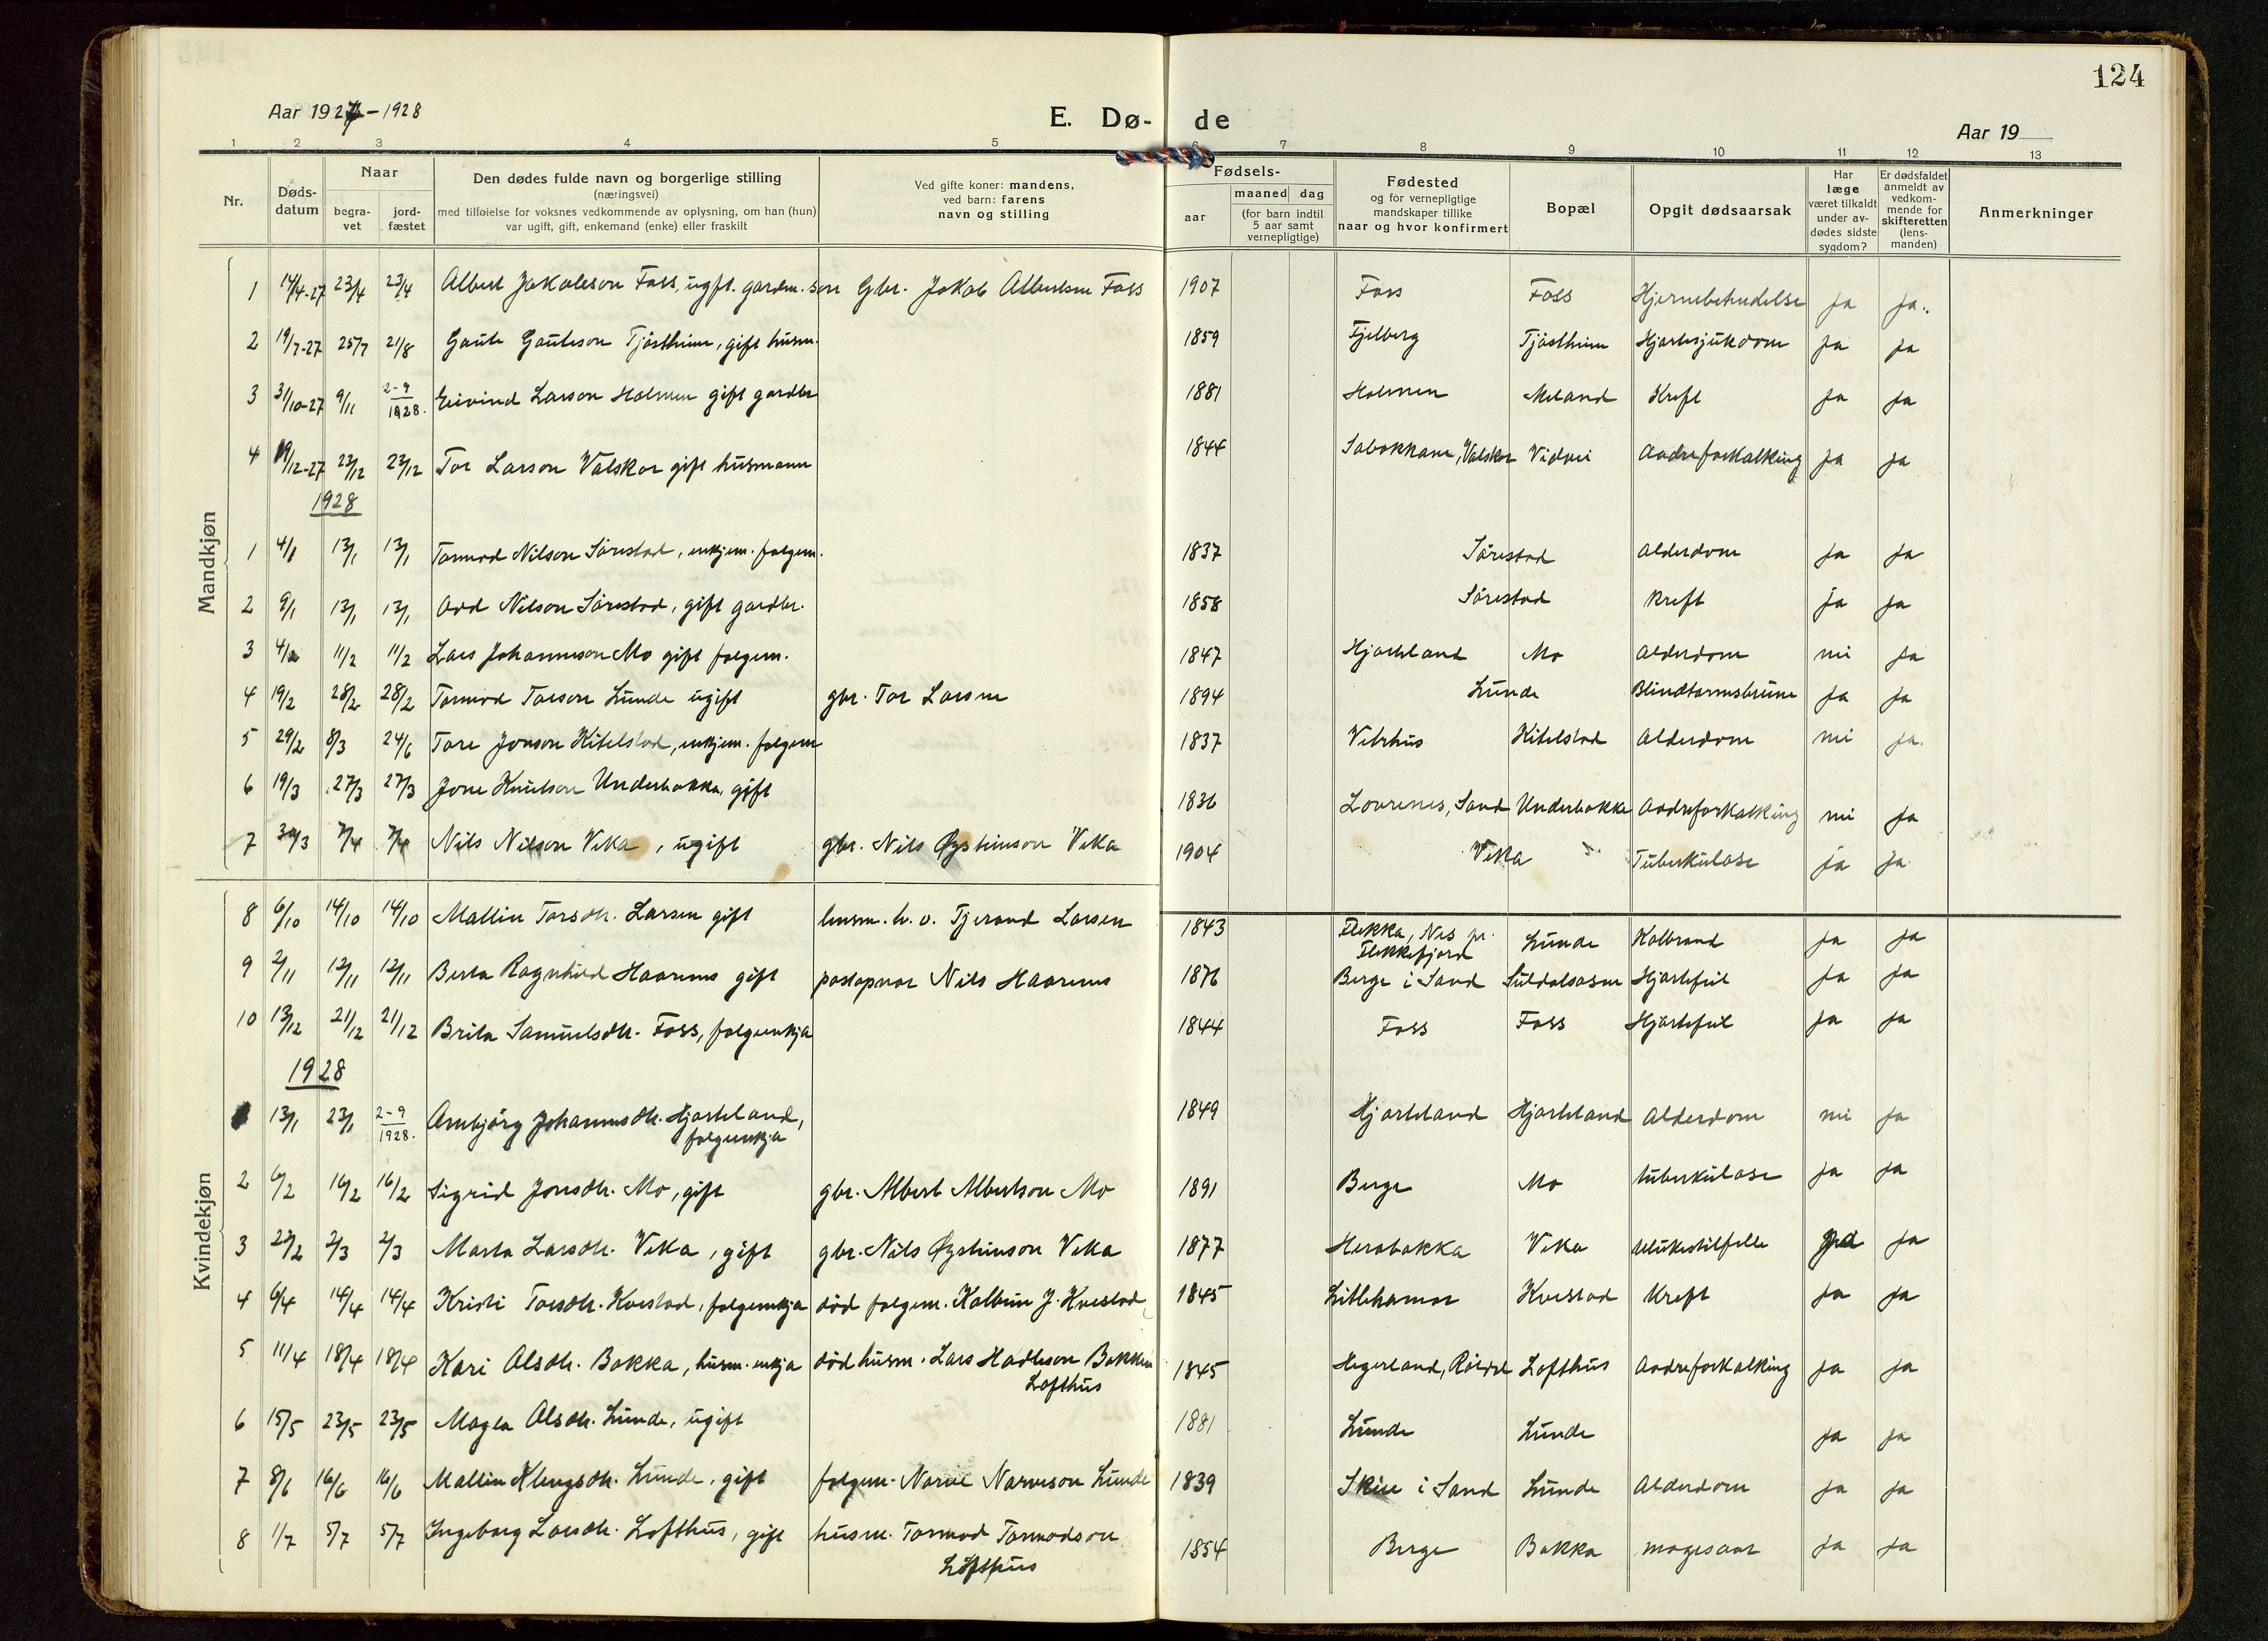 124
Aar 1927-1928
E. Dø- de
Aar 19
1 2 3 4 5 6 7 8 9 10 11 12 13
Nr.
Døds-datum
Naar
begra-vet
jord-fæstet
Den dødes fulde navn og borgerlige stilling
(næringsvei)
med tilføielse for voksnes vedkommende av oplysning, om han (hun)
var ugift, gift, enkemand (enke) eller fraskilt
Ved gifte koner: mandens,
ved barn: farens
navn og stilling
Fødsels-
aar
maaned dag
(for barn indtil
5 aar samt
vernepligtige)
Fødested
og for vernepligtige
mandskaper tillike
naar og hvor konfirmert
Bopæl
Opgit dødsaarsak
Har
læge
været tilkaldt
under av-
dødes sidste
sygdom?
Er dødsfaldet
anmeldt av
vedkom-
mende for
skifteretten
(lens-
manden)
Anmerkninger
Mandkjøn
1 14/4-27 23/4 23/4 Albert Jakobson Foss, ugft. gardm. son Gbr. Jakob Albertson Foss 1907 Foss Foss Hjernebetendelse ja ja.
2 19/7-27 25/7 21/8 Gaute Gauteson Tjøstheim, gift husm. 1859 Fjelberg Tjøstheim Hjartesjukdom ja ja
3 31/10-27 9/11 2-9 1928. Eivind Larson Holmen gift gardbr 1881 Holmen Meland Kreft ja ja
4 19/12-27 23/12 23/12 Tor Larson Valskor gift husmann 1844 Valskor Vidvei Aadreforkalking ja ja
1928
1 4/1 13/1 13/1 Tormod Nilson Sørestad, enkjem. folgem. 1837 Sørestad Alderdom ja ja
2 9/1 13/1 13/1 Odd Nilson Sørestad, gift gardbr. 1858 Sørestad kreft ja ja
3 4/2 11/2 11/2 Lars Johanneson Mo gift folgem. 1847 Hjorteland Mo Alderdom nei ja
4 19/2 28/2 28/2 Tormod Torson Lunde ugift gbr. Tor Larson 1894 Lunde Blindtarmsbrune ja ja
5 29/2 8/3 24/6 Tore Jonson Kitelstad, enkjem. folgem 1837 Vetrhus Kitelstad Alderdom nei ja.
6 19/3 27/3 27/3 Jone Knutson Underbakka, gift 1836 Lovrenes, Sand Underbakke Aadreforkalking nei ja
7 30/3 7/4 7/4 Nils Nilson Veka, ugift gbr. Nils Øysteinson Veka 1904 Veka Tuberkulose ja ja
Kvindekjøn
8 6/10 14/10 14/10 Mallin Torsdtr. Larsen gift husm. h. o. Tjerand Larsen 1843 Flekka, Nes pr. Flekkefjord Lunde Kolbrand ja ja
9 2/11 12/11 12/11 Berta Ragnhild Haarens gift postopnar Nils Haarens 1876 Berge i Sand Suldalsosen Hjartefeil ja ja
10 13/12 21/12 21/12 Brita Samuelsdtr. Foss, folgeenkja 1844 Foss Foss Hjartefeil ja ja
1928
13/1 23/1 2-9 1928. Arnbjørg Johannesdtr. Hjorteland, folgeenkja 1849 Hjorteland Hjorteland Alderdom nei ja
2 6/2 16/2 16/2 Sigrid Jonsdtr. Mo, gift gbr. Albert Albertson Mo 1891 Berge Mo tuberkulose ja ja
3 22/2 2/3 2/3 Marta Larsdtr. Veka, gift gbr. Nils Øysteinson Veka 1877 Herabakka Veka ulukestilfelle ja
4 6/4 14/4 14/4 Kristi Torsdtr. Kvestad, folgeenkja død folgem. Kolbein J. Kvestad 1845 Litlehamar Kvestad kreft ja ja
5 11/4 18/4 18/4 Kari Olsdtr. Bakka, husm. enkja død husm. Lars Hadleson Bakken Lofthus 1845 Hegerland, Røldal Lofthus Aadreforkalking ja ja
6 15/5 23/5 23/5 Magla Olsdtr. Lunde, ugift 1881 Lunde Lunde ja ja
7 8/6 16/6 16/6 Mallin Klengsdtr. Lunde, gift folgem. Narve Narveson Lunde 1839 i Sand Lunde Alderdom ja ja
8 1/7 5/7 5/7 Ingeborg Larsdtr. Lofthus, gift husm. Tormod Tormodson Lofthus 1854 Berge Bakka magesaar ja ja